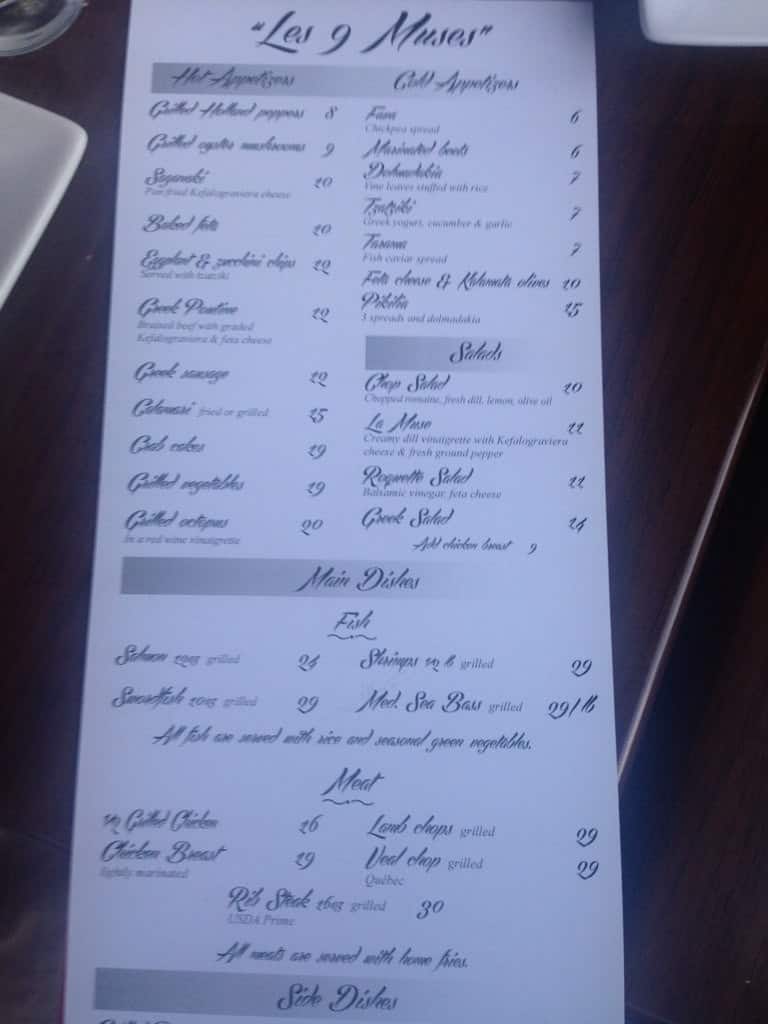 "Les 9 Muses"
Hot Appetizers
Grilled Holland peppers 8
Grilled oyster mushrooms 9
Saganaki 10
Pan fried Kefalograviera cheese
Baked feta 10
Eggplant & zucchini chips 12
Served with tzatziki
Greek Poutine 12
Braised beef with graded
Kefalograviera & feta cheese
Greek sausage 12
Calamari fried or grilled 15
Crab cakes 19
Grilled vegetables 19
Grilled octopus 20
In a red wine vinaigrette
Cold Appetizers
Fava 6
Chickpea spread
Marinated beets 6
Dolmadakia 7
Vine leaves stuffed with rice
Tzatziki 7
Greek yogurt, cucumber & garlic
Tarama 7
Fish caviar spread
Feta cheese & Kalamata olives 10
Pikilia 15
3 spreads and dolmadakia
Salads
Chop Salad 10
Chopped romaine, fresh dill, lemon, olive oil
La Muse 11
Creamy dill vinaigrette with Kefalograviera
cheese & fresh ground pepper
Roquette Salad 11
Balsamic vinegar, feta cheese
Greek Salad 14
Add chicken breast 9
Main Dishes
Fish
Salmon 10oz grilled 24 Shrimps 1/2 lb grilled 29
Swordfish 10oz grilled 29 Med. Sea Bass grilled 29/lb
All fish are served with rice and seasonal green vegetables.
Meat
1/2 Grilled Chicken 16 Lamb chops grilled 29
Chicken Breast 19 Veal chop grilled 29
lightly marinated Québec
Rib Steak 16oz grilled 30
USDA Prime
All meats are served with home fries.
Side Dishes